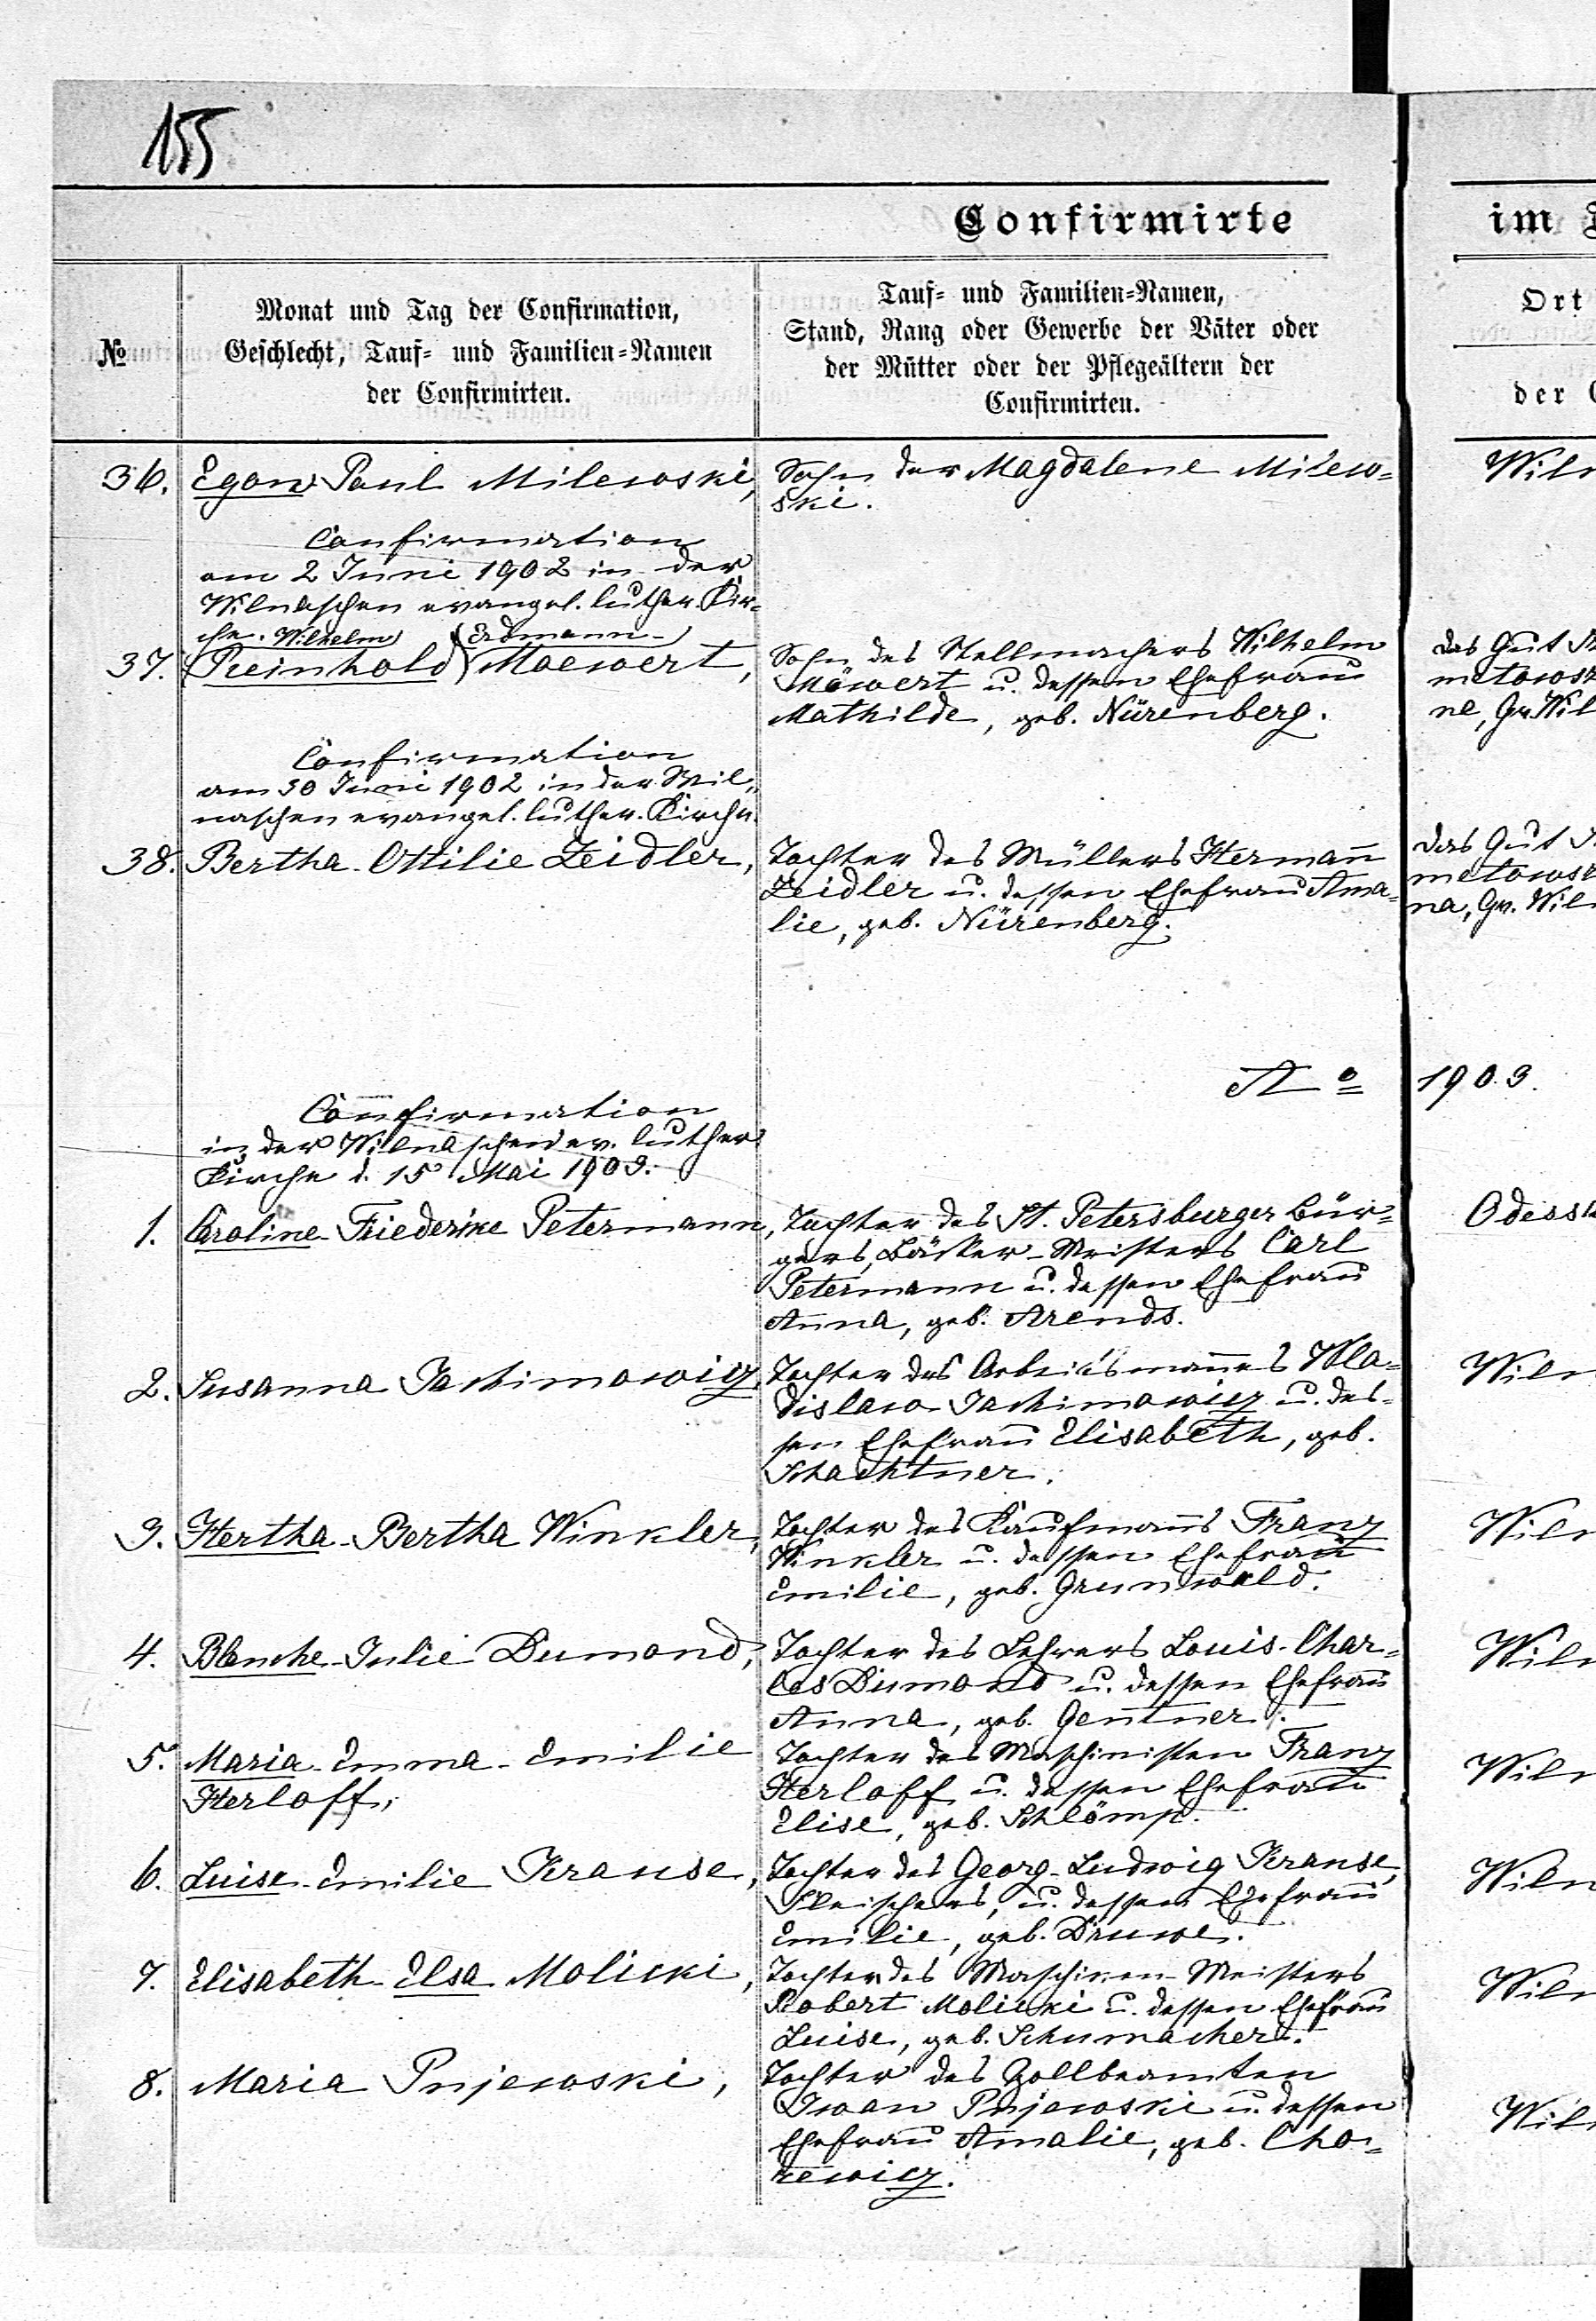 155
Confirmirte
im
№
Monat und Tag der Confirmation,
Geschlecht, Tauf- und Familien-Namen
der Confirmirten.
Tauf- und Familien-Namen,
Stand, Rang oder Gewerbe der Väter oder
der Mütter oder der Pflegeältern der
Confirmirten.
Ort
der
36. Egon Paul Milewski,
Sohn der Magdalene Milew-
ski.
Wiln
Confirmation
am 2 Juni 1902 in der
Wilnaschen evangel. luther. Kir-
che. Wilhelm (Erdmann-)
37. (Reinhold) Moewert,
Sohn des Stellmachers Wilhelm
Möwert u. dessen Ehefrau
Mathilde, geb. Nürenberg.
das Gut
metowsz
ne, Gv. Wil
Confirmation
am 30 Juni 1902 in der Wil-
naschen evangel. luther. Kirche.
38. Bertha-Ottilie Zeidler,
Tochter des Müllers Hermañ
Zeidler u. dessen Ehefrau Ama-
lie, geb. Nürenberg.
das Gut
metowsz
na, Gv. Wil
Ao 1903.
Confirmation
in der Wilnaschen ev. luther.
Kirche d. 15 Mai 1903.
1. Caroline-Friederike Petermann,
Tochter des St. Petersburger Bür-
gers, Bäcker-Meisters Carl
Petermann u. dessen Ehefrau
Anna, geb. Arends.
Odessa
2. Susanna Jachimowicz,
Tochter des Arbeitsmañes Wla-
dislaw Jachimowicz u. des-
sen Ehefrau Elisabeth, geb.
Schachtner.
Wiln
3. Hertha-Bertha Winkler,
Tochter des Kaufmañs Franz
Winkler u. dessen Ehefrau
Emilie, geb. Grunwald.
Wiln
4. Blanche-Julie Dumond,
Tochter des Lehrers Louis-Char-
les Dumond u. dessen Ehefrau
Anna, geb. Gentner.
Wiln
5. Maria-Emma-Emilie
Herloff,
Tochter des Maschinisten Franz
Herloff u. dessen Ehefrau
Elise, geb. Schlömp.
Wiln
6. Luise-Emilie Krause,
Tochter des Georg-Ludwig Krause,
Fleischers, u. dessen Ehefrau
Emilie, geb. Druwe.
Wiln
7. Elisabeth-Elsa Molicki,
Tochter des Maschinen-Meisters
Robert Molicki u. dessen Ehefrau
Luise, geb. Schumacher.
Wiln
8. Maria Pujewski,
Tochter des Zollbeamten
Iwan Pujewski u. dessen
Ehefrau Amalie, geb. Cho-
rewicz.
Wiln